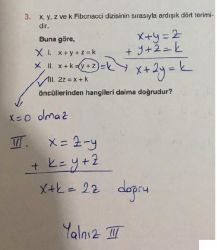 3. x, y, z ve k Fibonacci dizisinin sırasıyla ardışık dört terimi-
dir.
Buna göre,
x I. x + y + z = k
x II. x + k = y + z = k
III. 2z = x + k
öncüllerinden hangileri daima doğrudur?
x+y=z
+ y+z=k
x+2y=k
x=0 olmaz
III. x = z-y
+ k = y+z
x+k = 2z doğru
Yalnız III